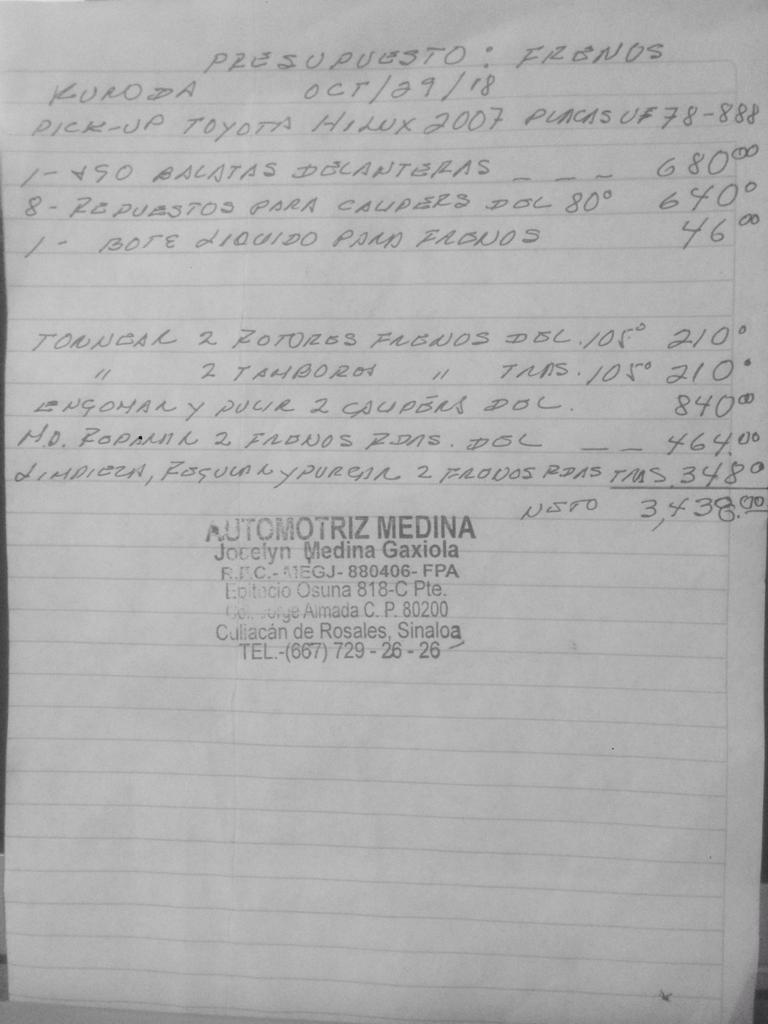 PRESUPUESTO: FRENOS
KURODA OCT/29/18
PICK-UP TOYOTA HILUX 2007 PLACAS UF 78-888
1- JGO BALATAS DELANTERAS _ _ _ 680.00
8- REPUESTOS PARA CALIPERS DEL 80° 640°
1- BOTE LIQUIDO PARA FRENOS 46.00
TORNEAR 2 ROTORES FRENOS DEL. 105° 210°
" 2 TAMBORES " TRAS. 105° 210°
ENGOMAR Y PULIR 2 CALIPERS DEL. 840.00
M.O. REPARAR 2 FRENOS RDAS. DEL _ _ 464.00
LIMPIEZA, REGULAR Y PURGAR 2 FRENOS RDAS TRAS. 348°
NETO 3,438.00
AUTOMOTRIZ MEDINA
Jocelyn Medina Gaxiola
R.F.C.- MEGJ- 880406- FPA
Epitacio Osuna 818-C Pte.
Col. Jorge Almada C. P. 80200
Culiacán de Rosales, Sinaloa
TEL.-(667) 729 - 26 - 26